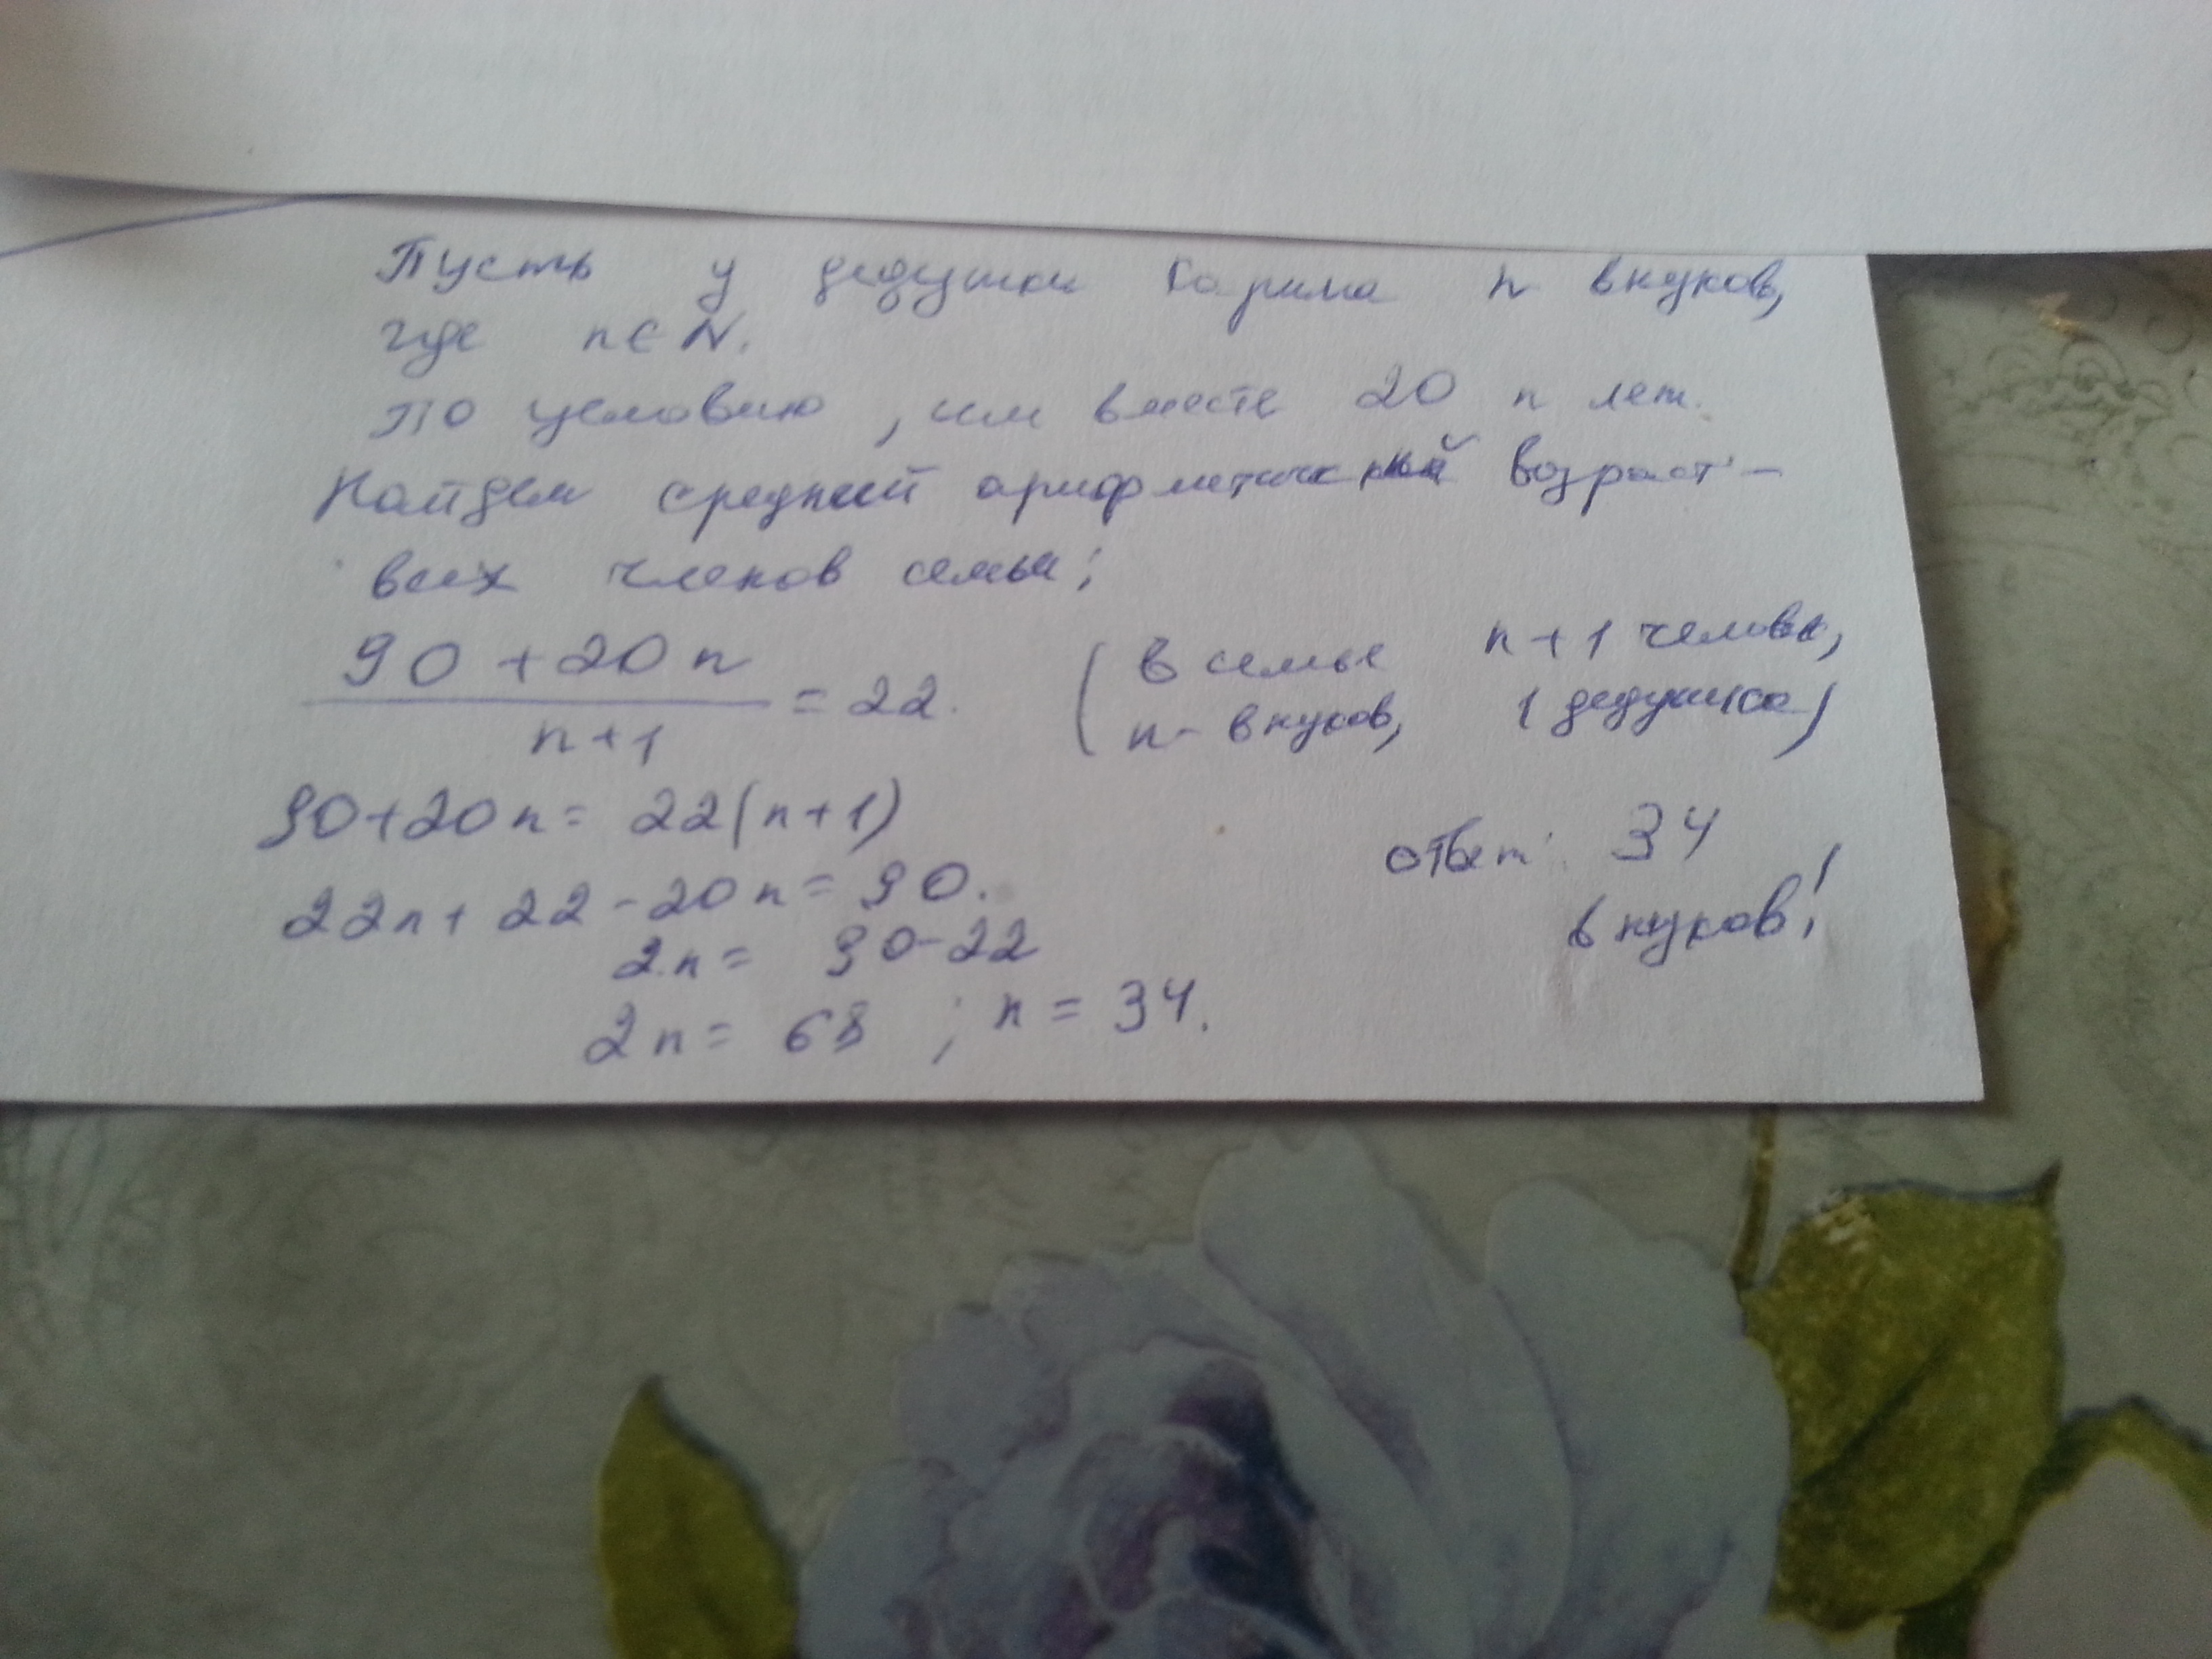 Пусть у дедушки Карима n внуков,
где n ∈ N.
По условию, им вместе 20 n лет.
Найдем средний арифметический возраст -
всех членов семьи:
90 + 20 n
n + 1
= 22.
(в семье n + 1 человек,
n - внуков, 1 дедушка)
90 + 20 n = 22(n + 1)
22n + 22 - 20n = 90.
2n = 90 - 22
2n = 68 ; n = 34.
ответ: 34
внуков!